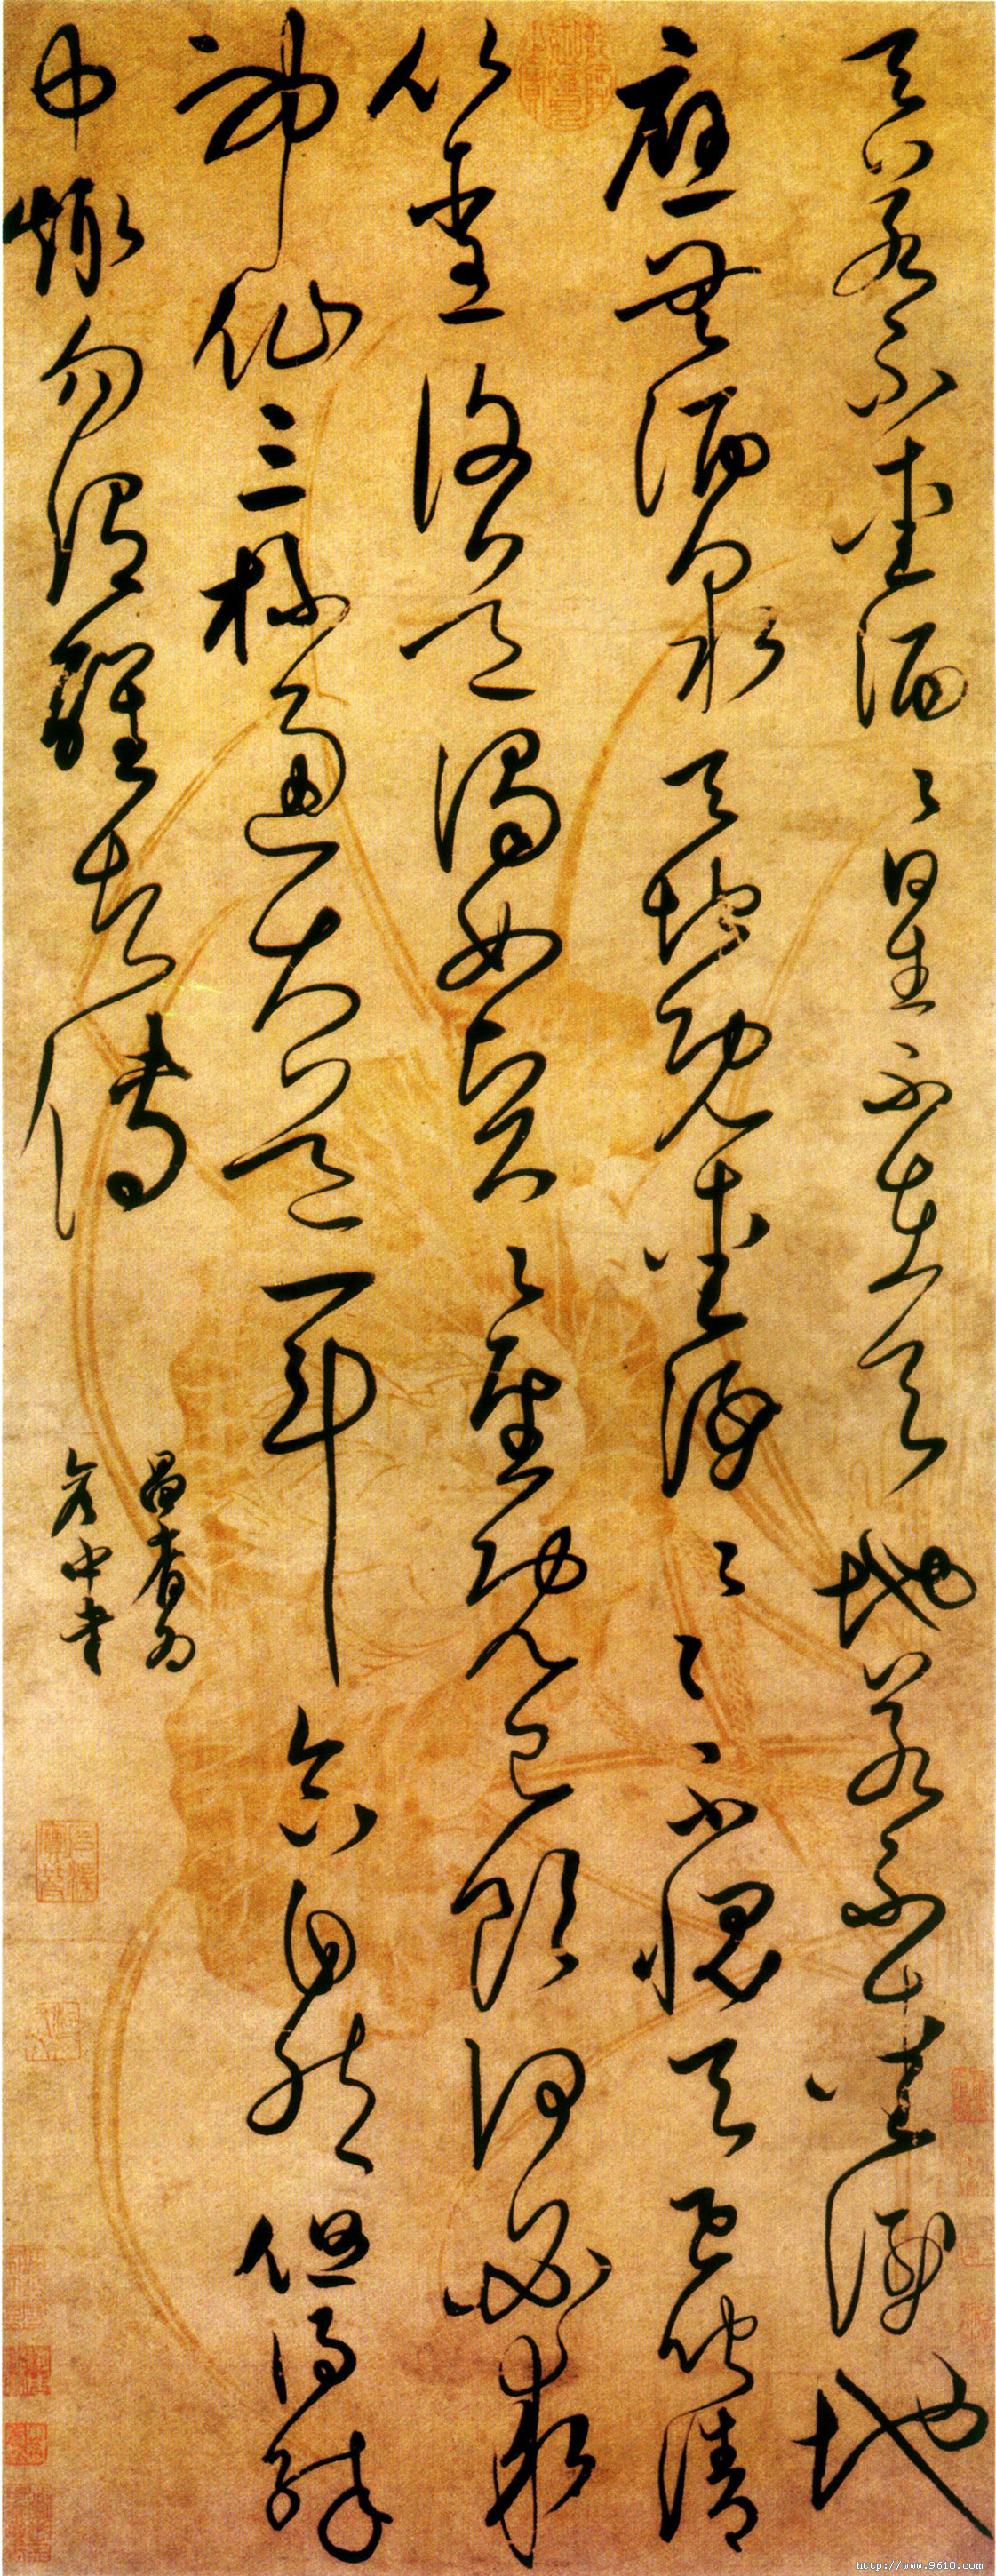 天若不愛酒〻星不在天地若不愛酒地
應無酒泉天地既愛酒〻〻不愧天已聞清
比聖復道濁如賢〻聖既已飲何必求
神仙三杯通大道一斗合自然但得醉
中趣勿謂醒者傳
昌裔為
彦中書
http://www.9610.com